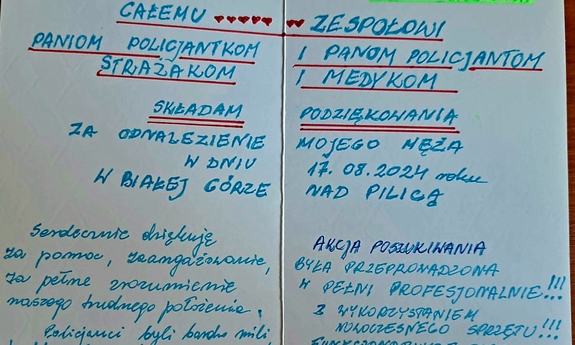 CAŁEMU ZESPOŁOWI
PANIOM POLICJANTKOM I PANOM POLICJANTOM
STRAŻAKOM I MEDYKOM
SKŁADAM PODZIĘKOWANIA
ZA ODNALEZIENIE MOJEGO MĘŻA
W DNIU 17.08.2024 roku
W BIAŁEJ GÓRZE NAD PILICĄ
Serdecznie dziękuję
za pomoc, zaangażowanie,
za pełne zrozumienie
naszego trudnego położenia.
Policjanci byli bardzo mili
AKCJA POSZUKIWANIA
BYŁA PRZEPROWADZONA
W PEŁNI PROFESJONALNIE!!!
Z WYKORZYSTANIEM
NOWOCZESNEGO SPRZĘTU!!!